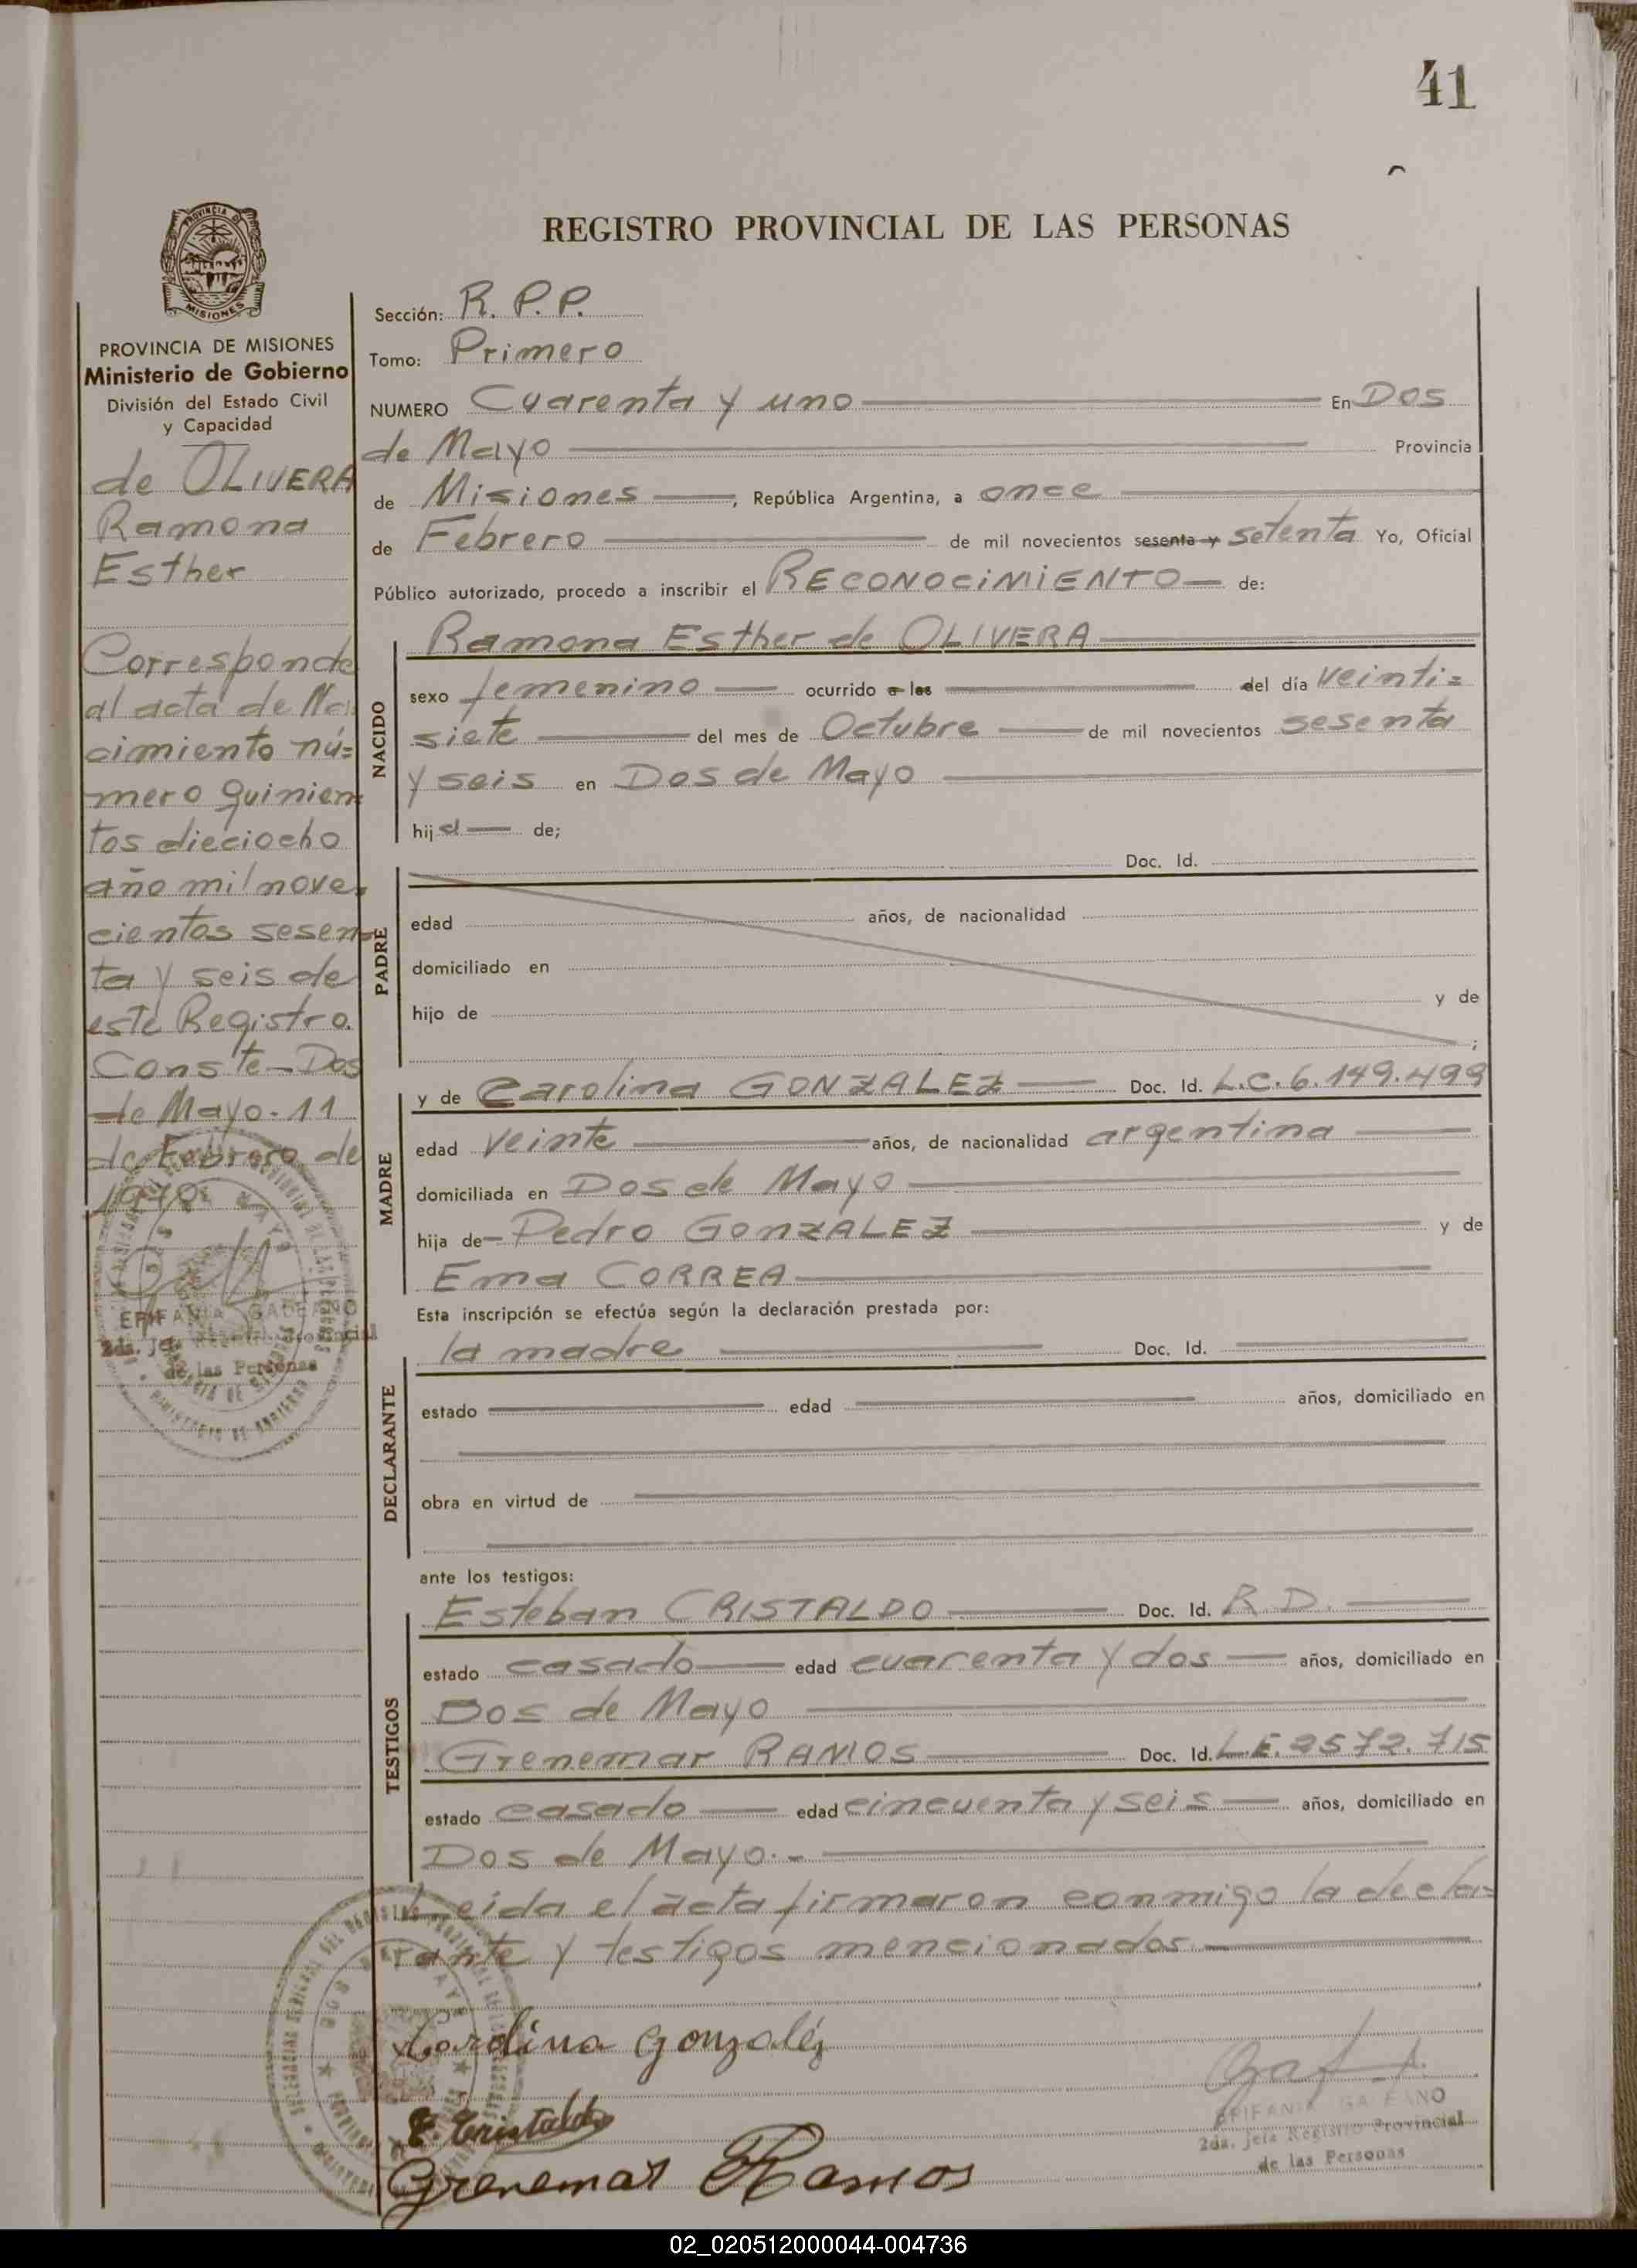 41
REGISTRO PROVINCIAL DE LAS PERSONAS
PROVINCIA DE
MISIONES
PROVINCIA DE MISIONES
Ministerio de Gobierno
División del Estado Civil
y Capacidad
de OLIVERA
Ramona
Esther
Corresponde
al acta de Na
cimiento nú=
mero quinien
tos dieciocho
año mil nove
cientos sesen=
ta y seis de
este Registro.
Conste-Dos
de Mayo-11
de Febrero de
1970.
EPIFANIA GALEANO
2da. Jefa Registro Provincial
de las Personas
Sección: R. P. P.
Tomo: Primero
NUMERO Cuarenta y uno En Dos
de Mayo Provincia
de Misiones, República Argentina, a once
de Febrero de mil novecientos sesenta y setenta Yo, Oficial
Público autorizado, procedo a inscribir el RECONOCIMIENTO de:
NACIDO
Ramona Esther de OLIVERA
sexo femenino ocurrido a las del día veinti=
siete del mes de Octubre de mil novecientos sesenta
y seis en Dos de Mayo
hija de;
PADRE
Doc. Id.
edad años, de nacionalidad
domiciliado en
hijo de y de
;
MADRE
y de Carolina GONZALEZ Doc. Id. L.C. 6.149.499
edad veinte años, de nacionalidad argentina
domiciliada en Dos de Mayo
hija de Pedro GONZALEZ y de
Ema CORREA
Esta inscripción se efectúa según la declaración prestada por:
DECLARANTE
la madre Doc. Id.
estado edad años, domiciliado en
obra en virtud de
ante los testigos:
TESTIGOS
Esteban CRISTALDO Doc. Id. R.D.
estado casado edad cuarenta y dos años, domiciliado en
Dos de Mayo
Grenemar RAMOS Doc. Id. L.E. 2572.715
estado casado edad cincuenta y seis años, domiciliado en
Dos de Mayo.-
Leida el acta firmaron conmigo la decla=
rante y testigos mencionados.
Carolina Gonzaléz
E. Cristaldo
Grenemar Ramos
EPIFANIA GALEANO
2da. Jefa Registro Provincial
de las Personas
02_020512000044-004736